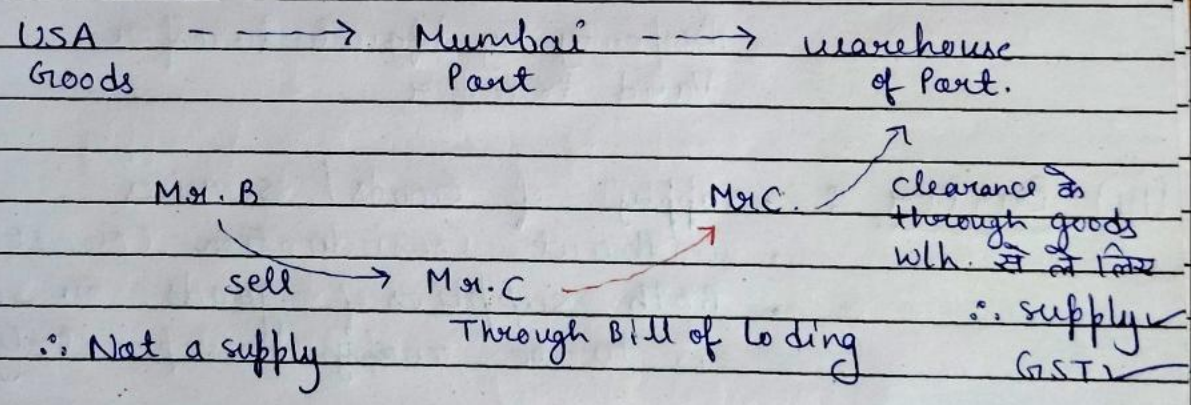 USA - - -> Mumbai - - -> warehouse
Goods Port of Port.
Mr. B Mr C. clearance के
through goods
wlh. से ले लिए
sell Mr. C
∴ supply ✓
Through Bill of loding
∴ Not a supply
GST ✓